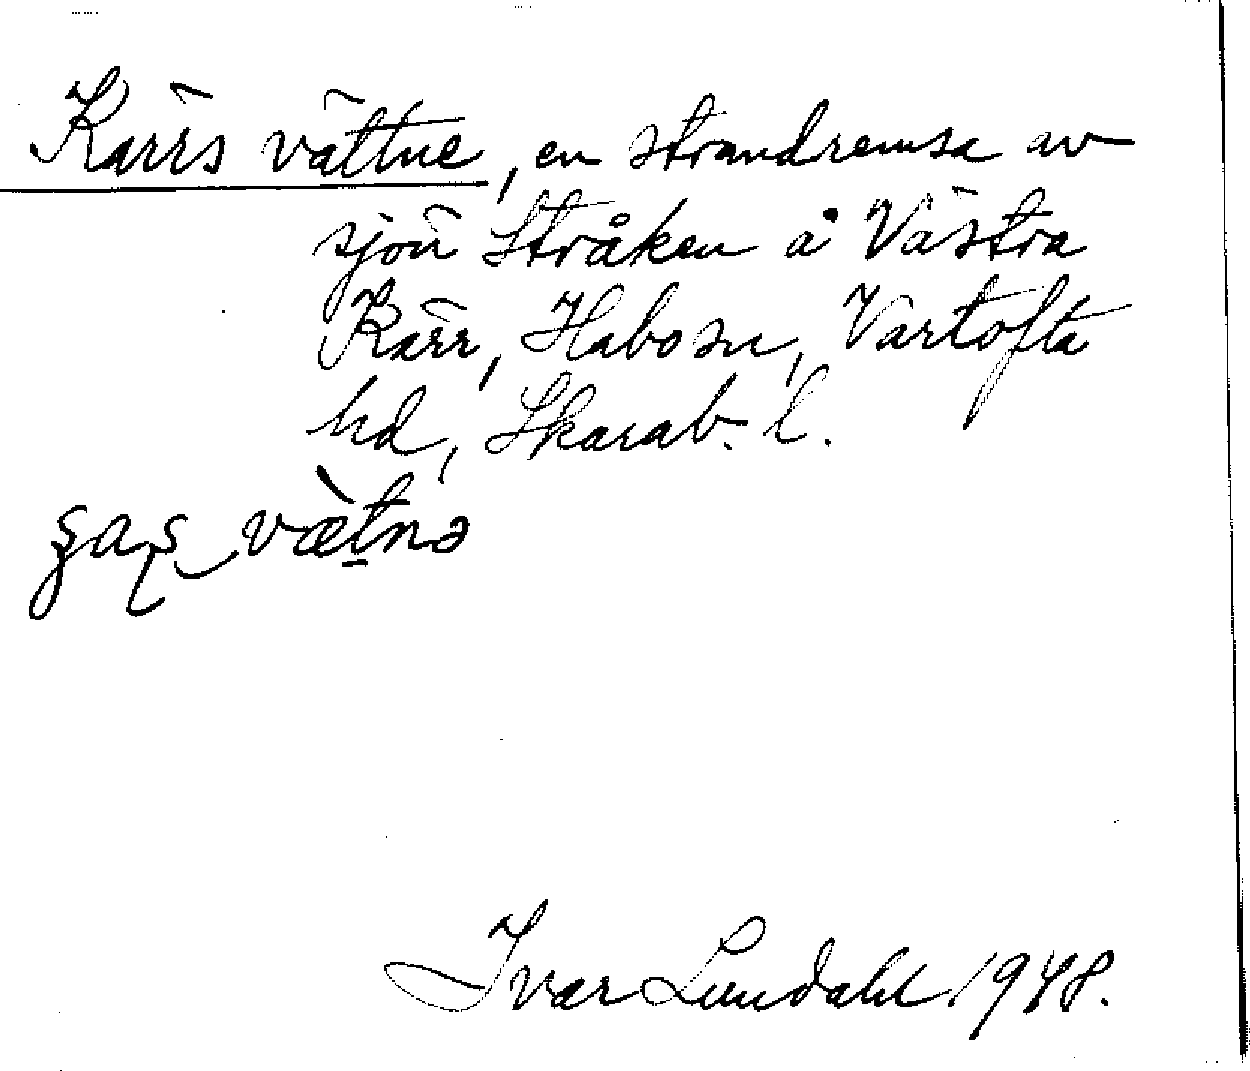 Kärrs vättne, en strandremsa av
sjön Stråken å Västra
Kärr, Habo sn, Vartofta
hd, Skarab. l.
vætnə
Ivar Lundahl 1948.